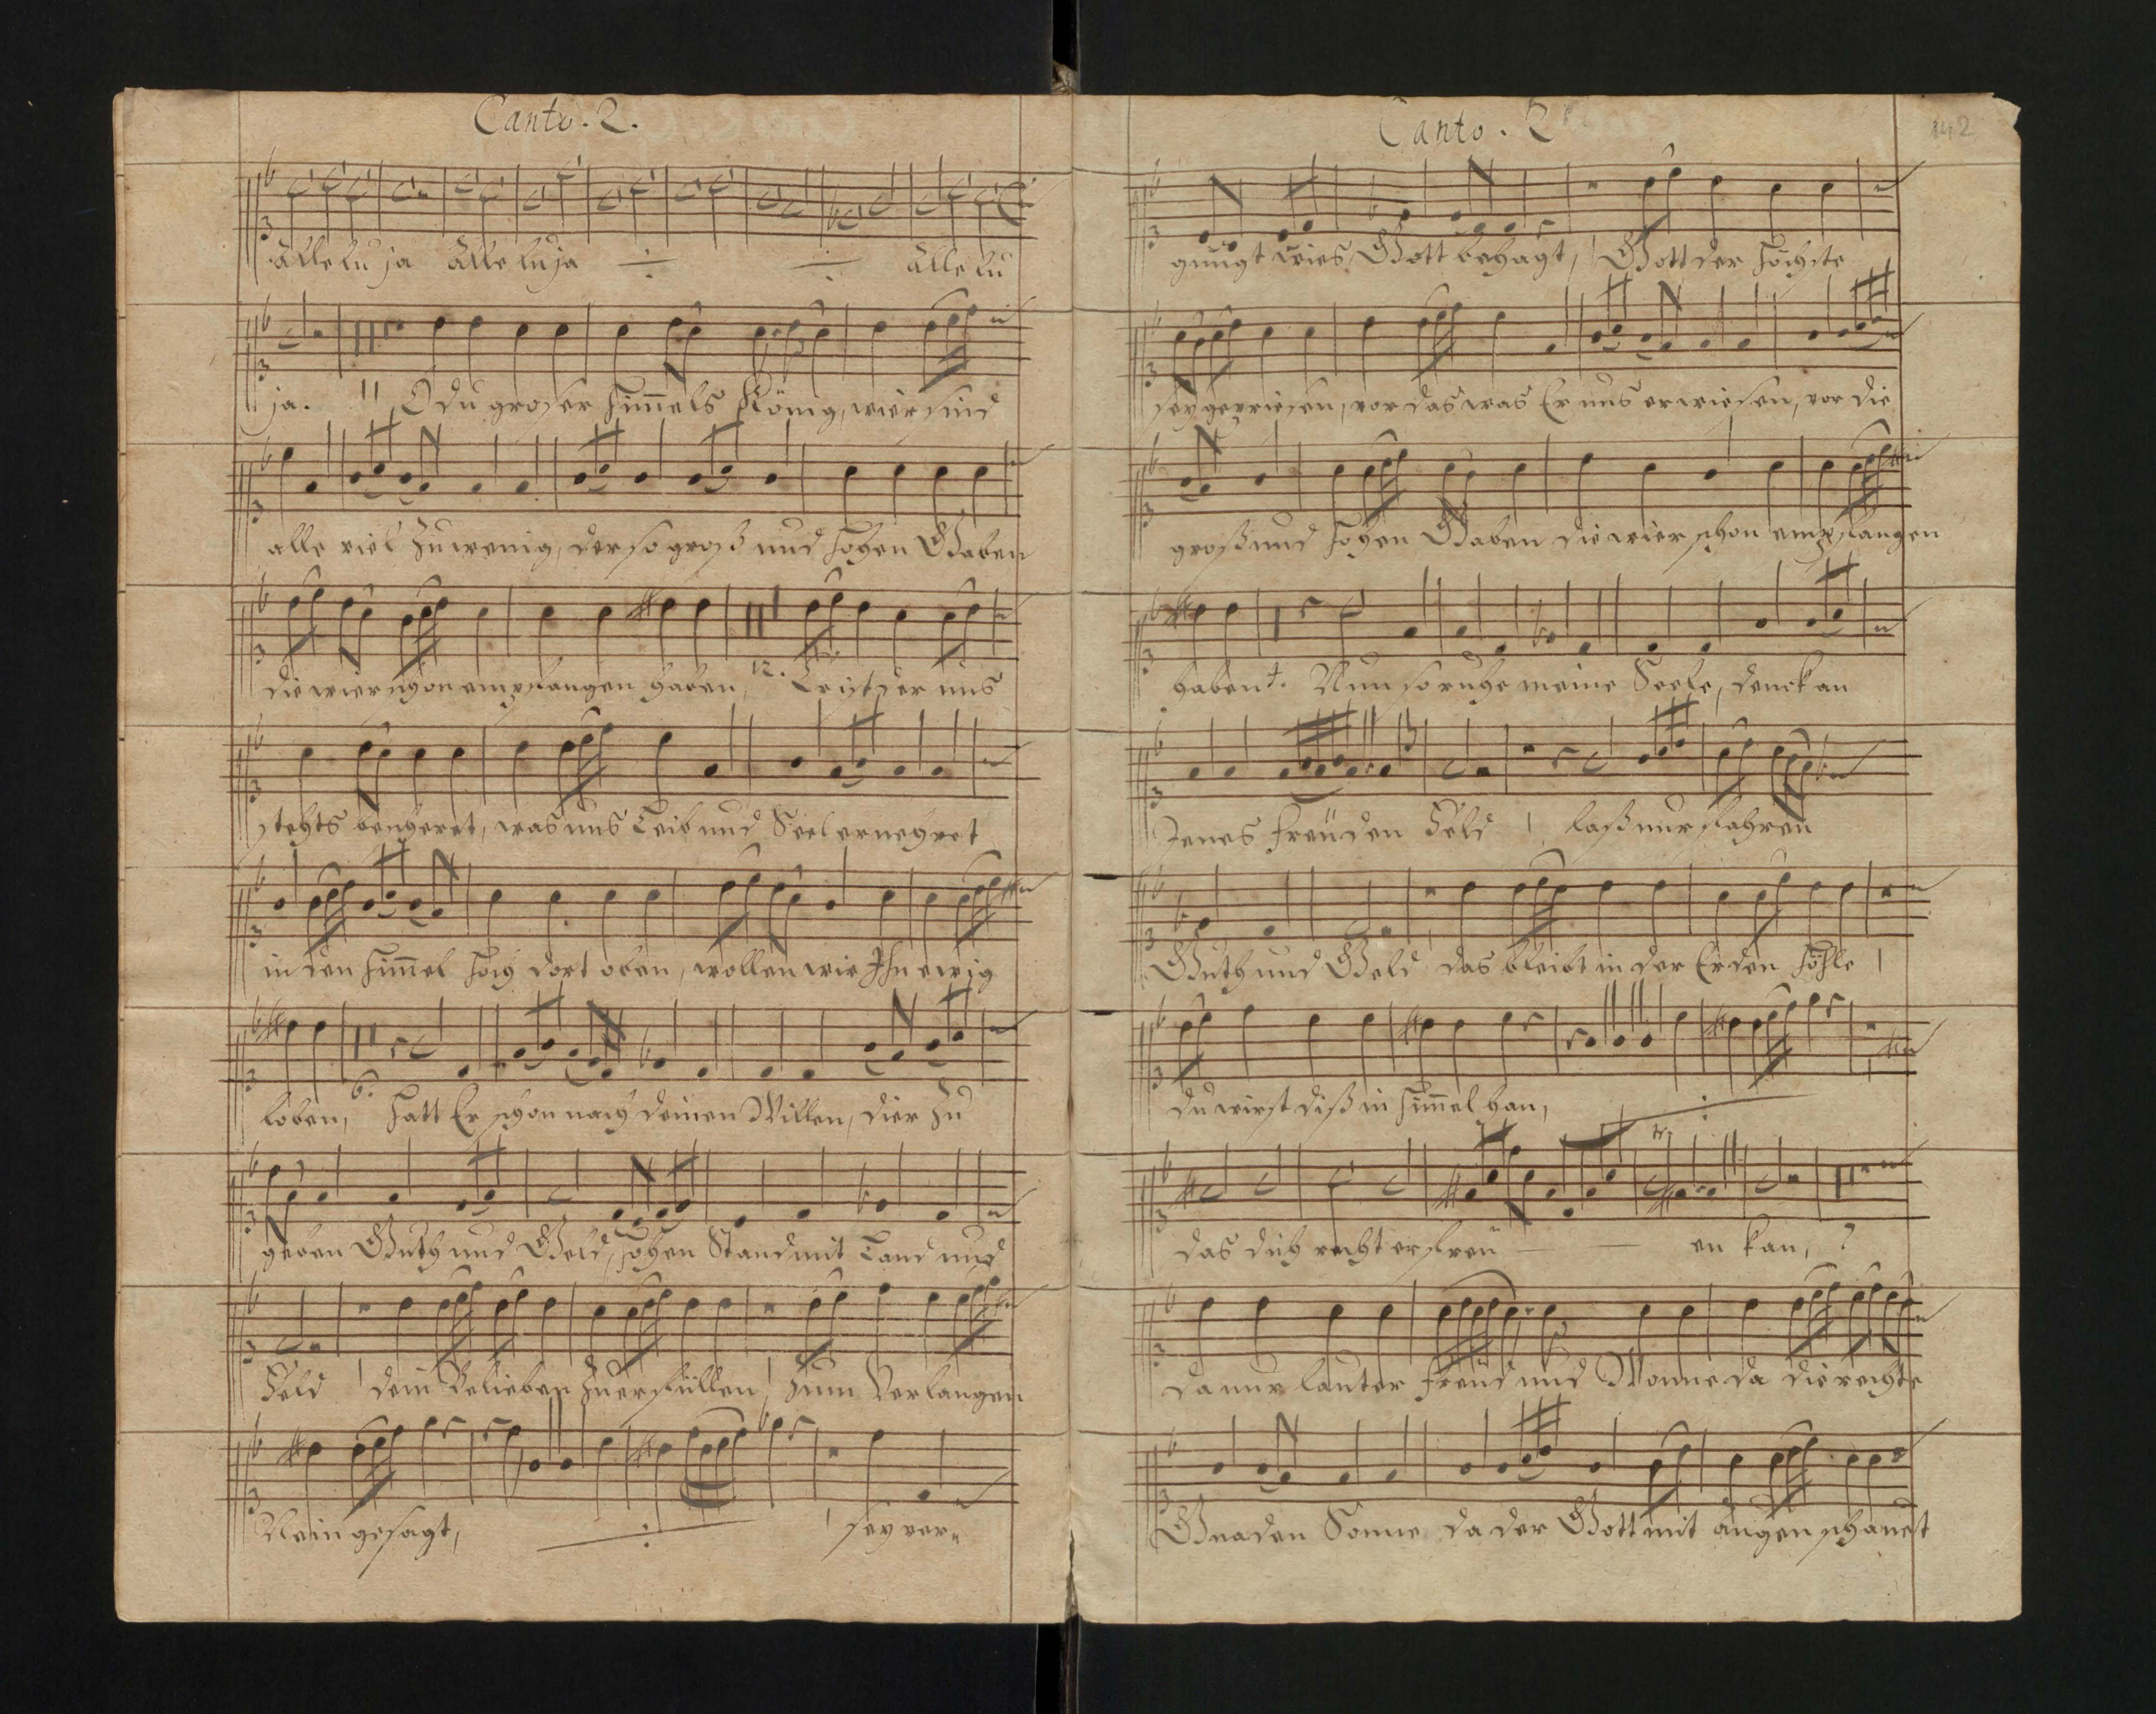 Canto. 2.
Alleluja Alleluja Allelu
ja. 11 O du großer Himmels König, wier sind
alle viel zu wenig, der so groß und hohen Gaben
die wier schon empfangen haben, 12. Er ist der uns
stehts bescheret, was uns Leib und Seel ernehret
in den Himmel hoch dort oben, wollen wir Ihn ewig
loben, 6. Hatt Er schon nach deinen Willen, dier zu
geben Guth und Geld, hohen Stand mit Land und
Feld 1 dein Belieben zu erfüllen, 1 zum Verlangen
Nein gesagt, 1 sey ver-
Canto. 2
142
gnügt wies Gott behagt, 1 Gott der Höchste
sey gepriesen, vor das was Er uns erwiesen, vor die
groß und hohen Gaben die wier schon empfangen
haben 4. Nun so ruhe meine Seele, denck an
Jenes Freüden Feld 1 laß nur fahren
Guth und Geld das bleibt in der Erden Höhle 1
du wirst diß in Himmel han,
tr.
das dich recht erfreü en kan, 2
da nur lauter Freüd und Wonne da die rechte
Gnaden Sonne da der Gott mit Augen schauest